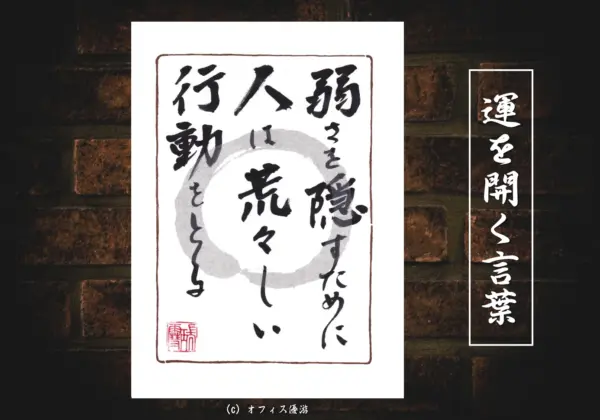 弱さを隠すために
人は荒々しい
行動をとる
運を開く言葉
(C) オフィス優游